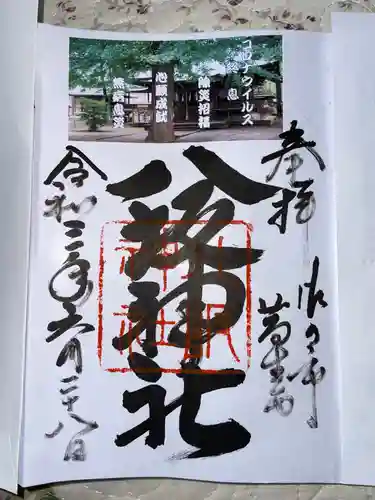 コロナウイルス
終息
除災招福
心願成就
無病息災
奉拝
八坂神社
令和三年六月二十八日